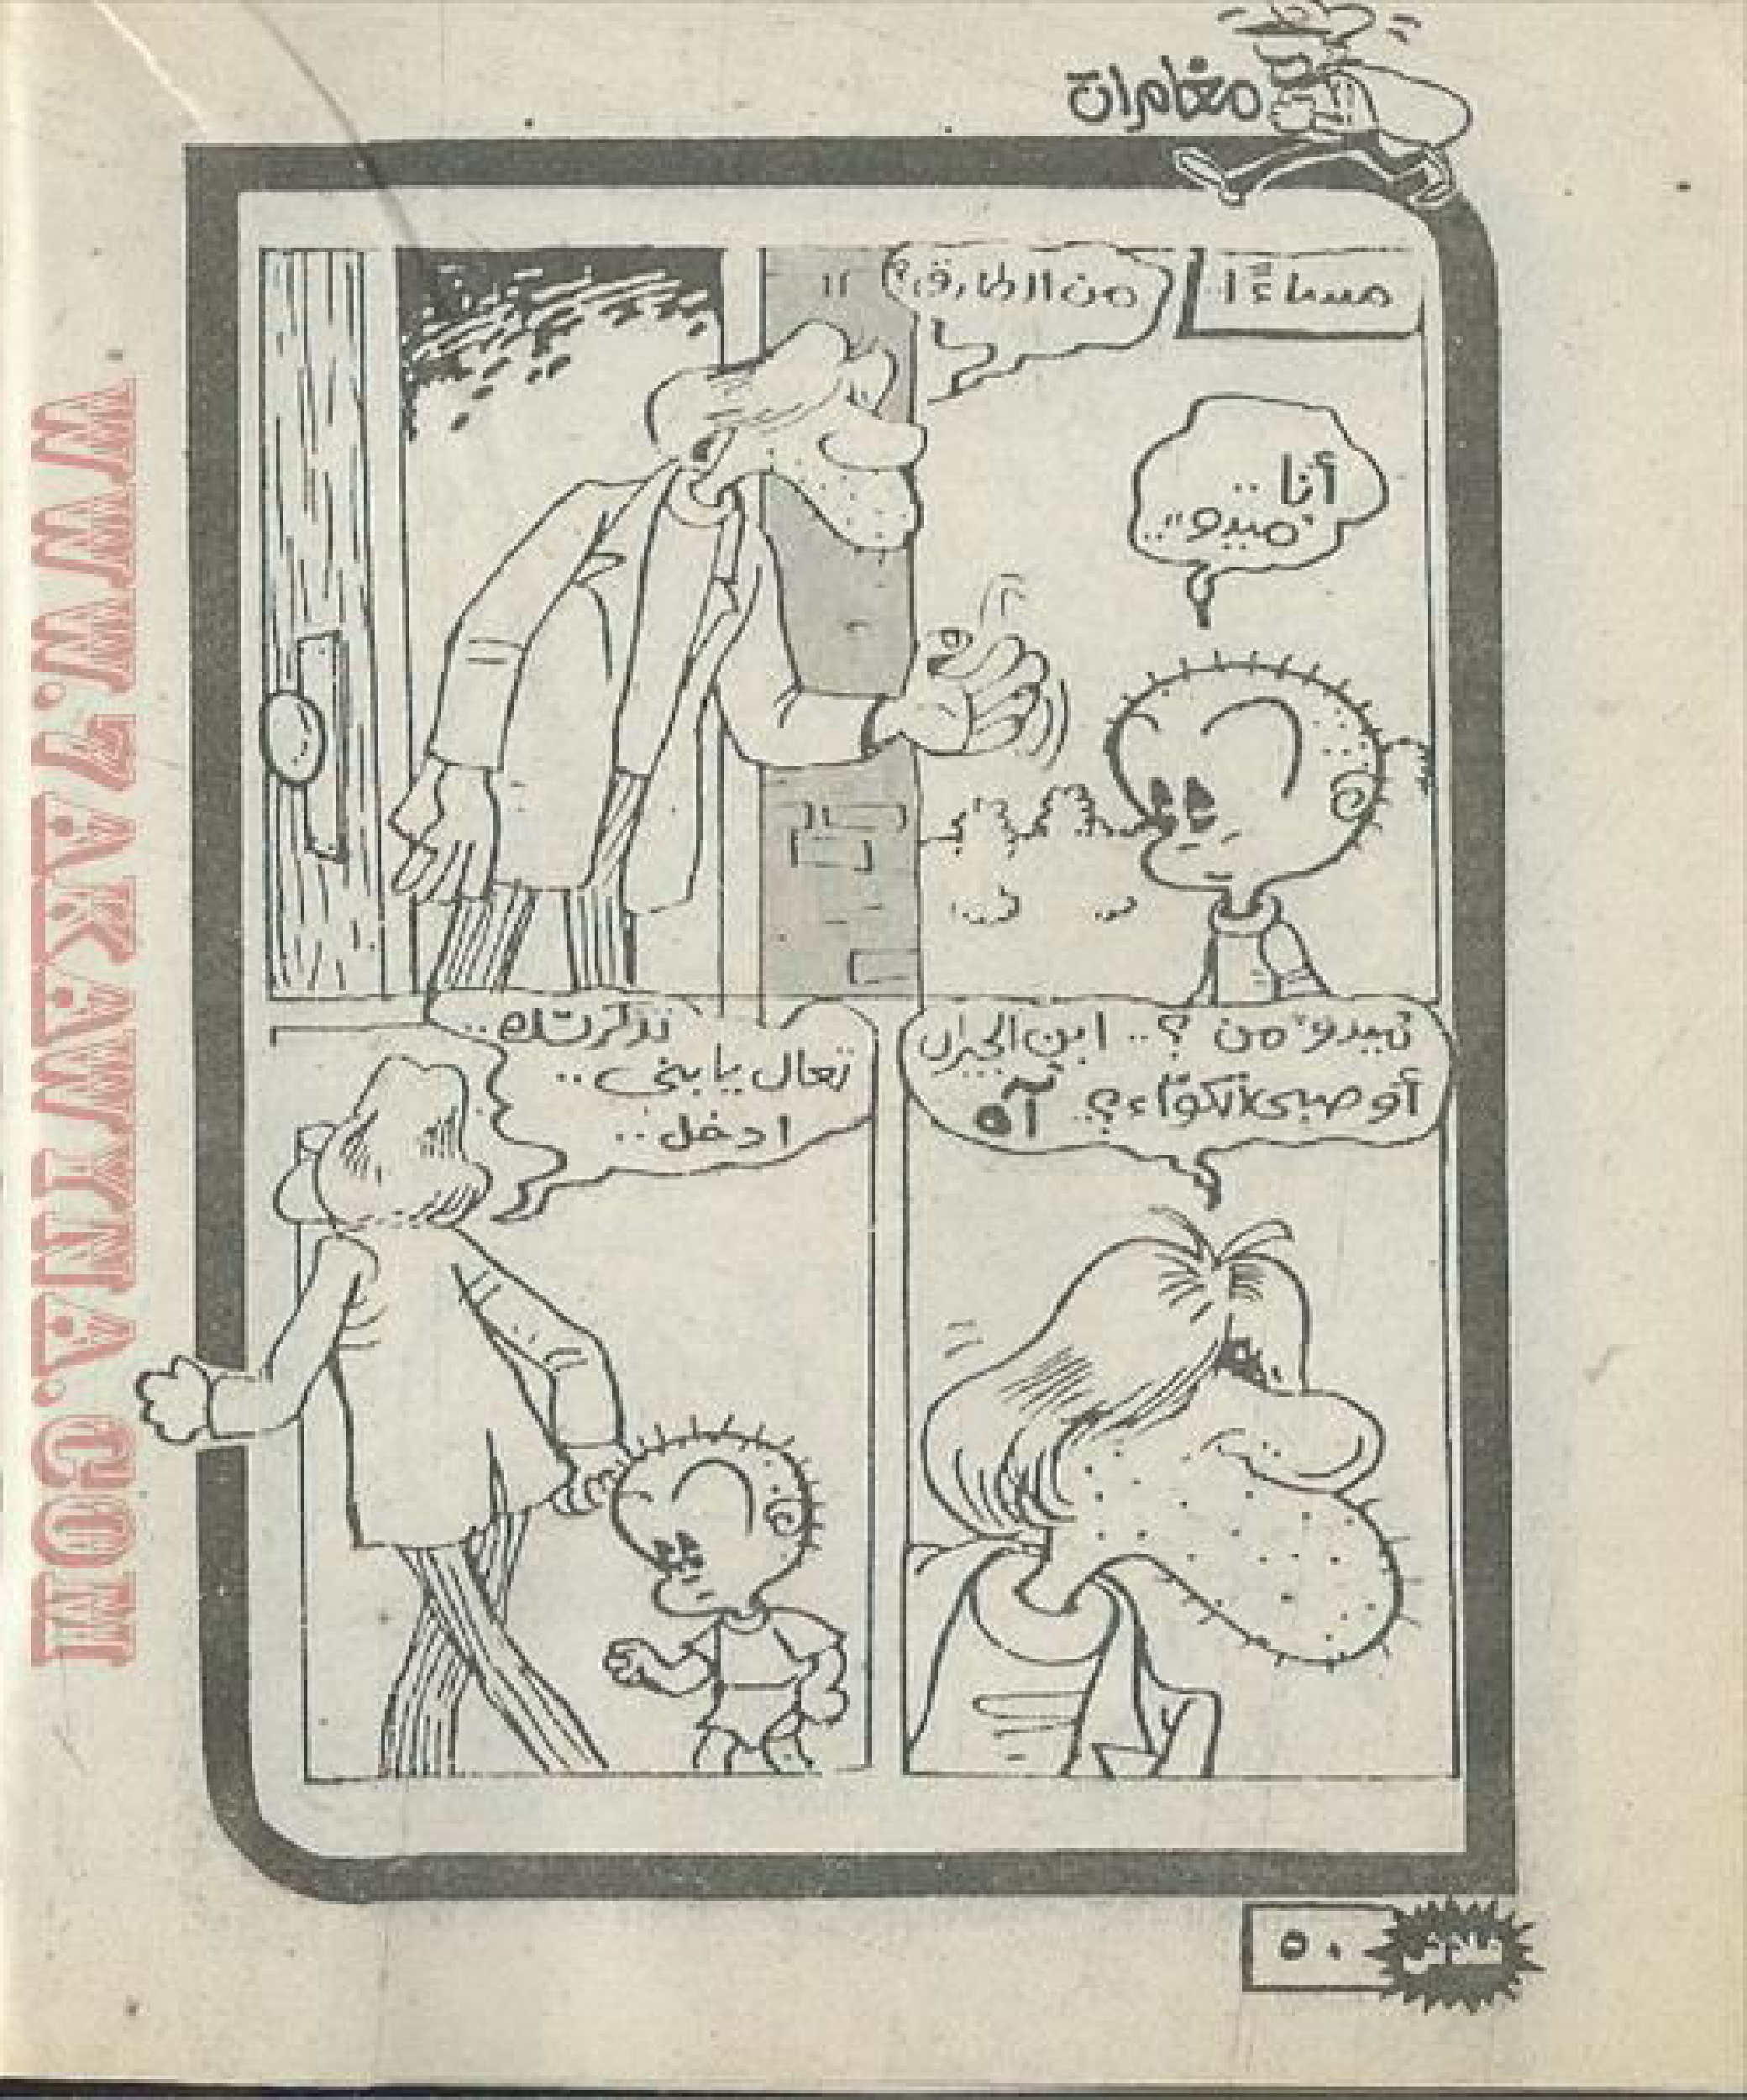 مغامرات
مساءًا
من الطارق؟
أنا ..
"ميدو"..
"ميدو" من ؟.. ابن الجيران
أو صبى المكواء؟.. آه
تذكرتك..
تعال يا بنى..
ادخل..
٥٠
WWW.7AKAWINA.COM